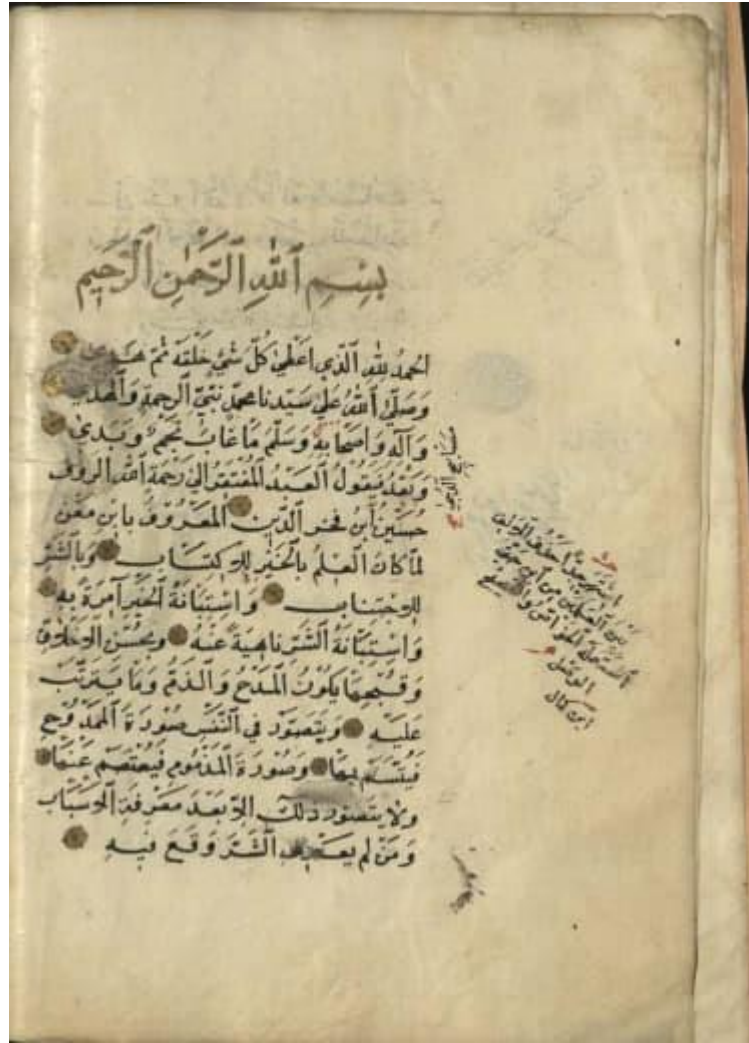 بِسْمِ ٱللهِ ٱلرَّحْمٰنِ ٱلرَّحِيمِ
الحمدُ للهِ ٱلَّذي اعطىٰ كُلَّ شيْءٍ خَلقَه ثمّ هدىٰ
وَصَلّىٰ ٱللهُ عَلىٰ سَيّدنا محمّدٍ نبيّ ٱلرحمةِ وَٱلهُدىٰ
وَآله وَاصحَابهِ وَسَلّم مَا غابَ نجمٌ وبَدىٰ
وَبَعْدُ فيقولُ ٱلعَبْدُ ٱلمُفتقرُ الىٰ رَحمة ٱلله ٱلروف
حُسَيْنُ ابن فخر ٱلدّين ٱلمعْرُوفُ بابن مَعْن
لمّا كانَ ٱلعِلمُ بالخَيْرِ للاكتسَابِ وَبالشّرّ
للاجتنابِ وَاسْتِبَانَةُ ٱلخَيْر آمِرَةً بهِ
وَاسْتِبَانَةُ ٱلشّرّ ناهِيةً عَنْهُ وبحُسْن ٱلاخلاق
وَقُبْحِهَا يَكُونُ ٱلمَدْحُ وَٱلذّمُّ وَمَا يَترَتّبُ
عَليْهِ وَيتصَوّرُ في ٱلنّفْسِ صُورَةَ ٱلمَمْدُوحِ
فيتّسَمُ بهَا وَصُورَةَ ٱلمَذمُومِ فيُعْتصَمُ عَنهَا
ولا يتصوّر ذلكَ الّا بَعْدَ مَعْرفةِ ٱلاسْبَابِ
وَمَنْ لم يعرف ٱلشّرَّ وَقعَ فيهِ
ابن كمال